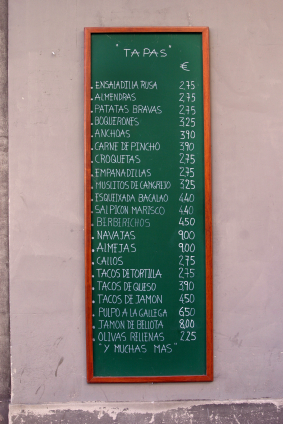 "TAPAS"
€
ENSALADILLA RUSA 2,75
ALMENDRAS 2,75
PATATAS BRAVAS 2,75
BOQUERONES 3,25
ANCHOAS 3,90
CARNE DE PINCHO 3,90
CROQUETAS 2,75
EMPANADILLAS 2,75
MUSLITOS DE CANGREJO 3,25
ESQUEIXADA BACALAO 4,40
SALPICON MARISCO 4,40
BERBERICHOS 4,50
NAVAJAS 9,00
ALMEJAS 9,00
CALLOS 2,75
TACOS DE TORTILLA 2,75
TACOS DE QUESO 3,90
TACOS DE JAMON 4,50
PULPO A LA GALLEGA 6,50
JAMON DE BELLOTA 8,00
OLIVAS RELLENAS 2,25
"Y MUCHAS MAS"